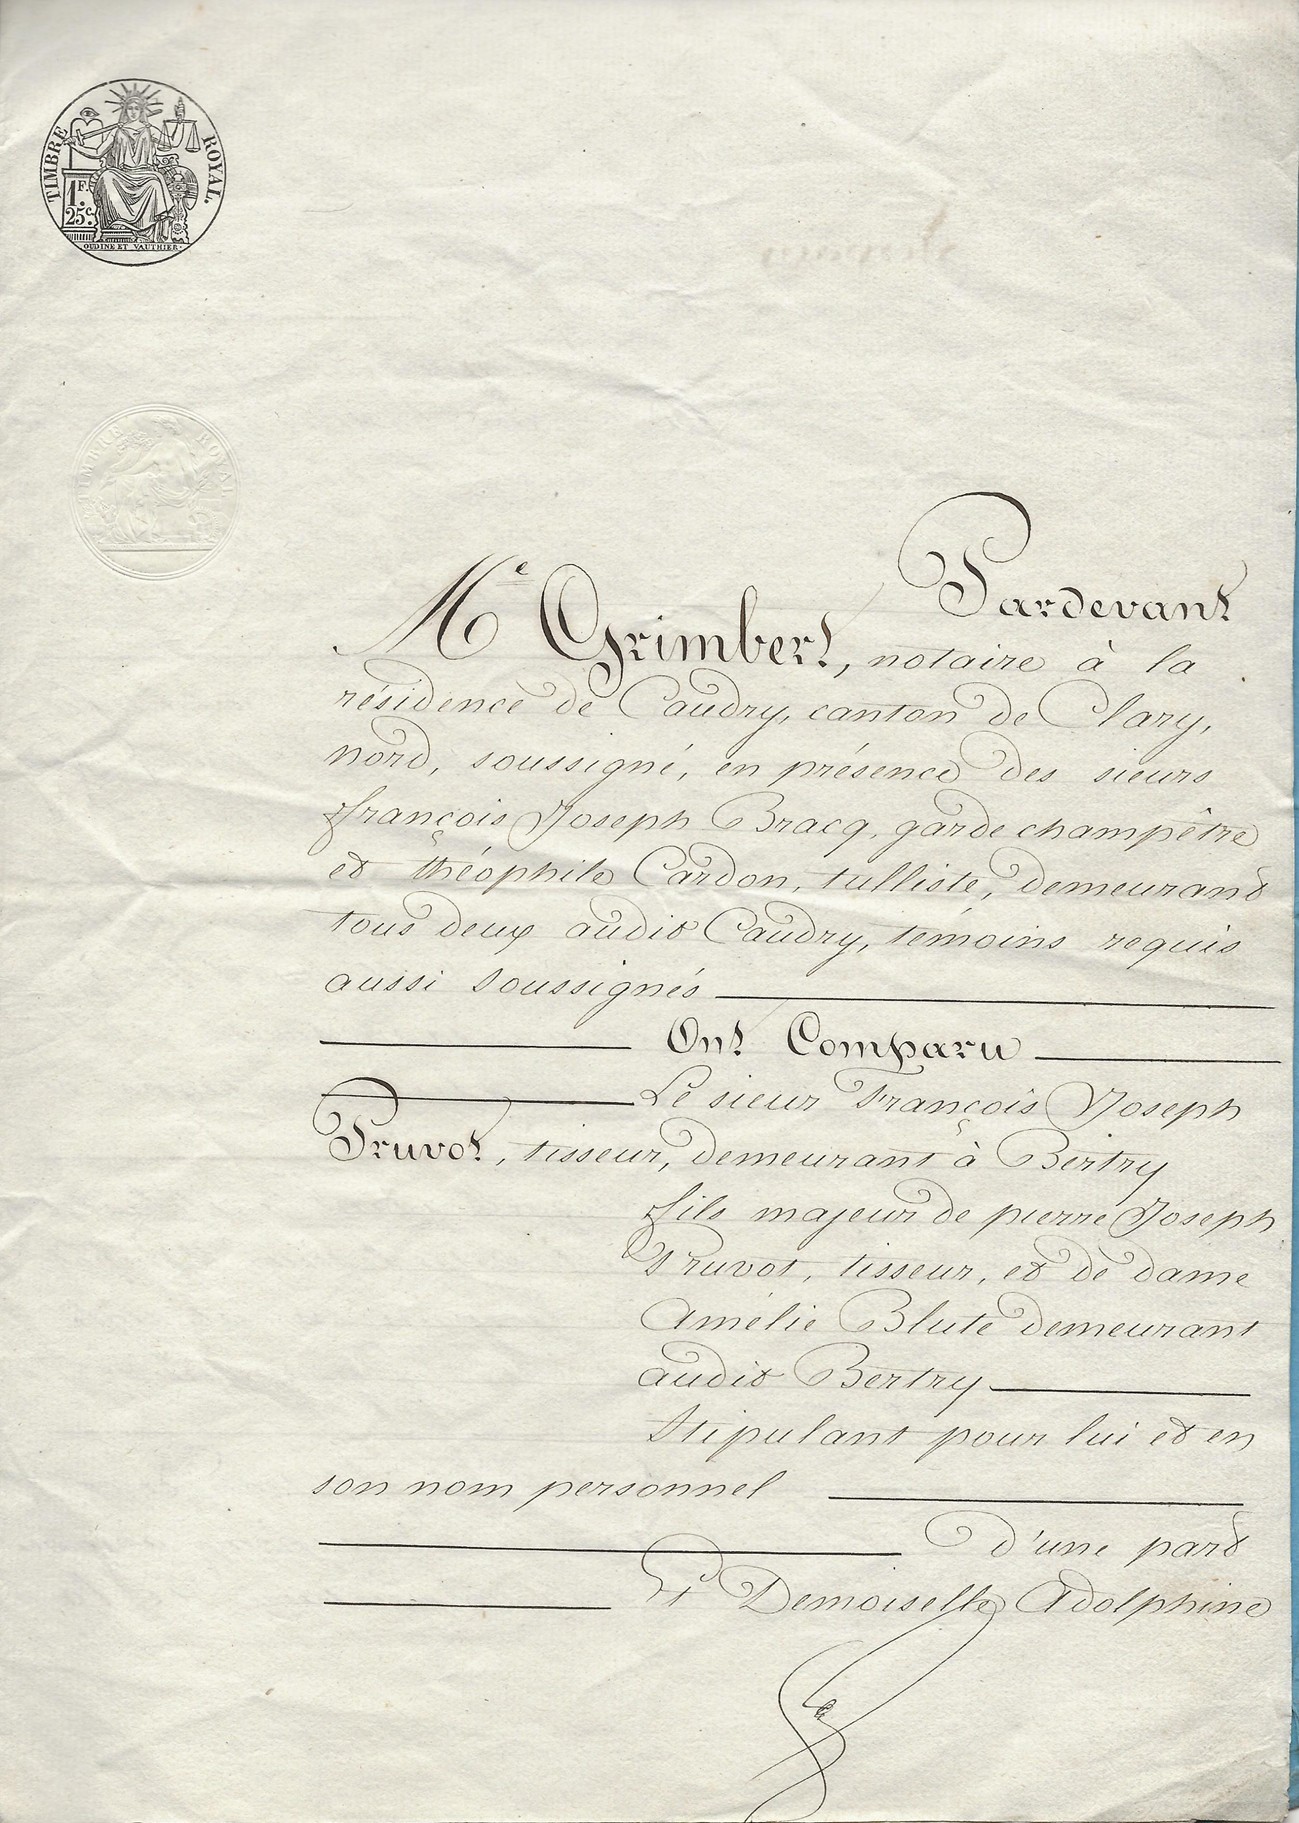 TIMBRE ROYAL.
1F.
25c.
OUDINE ET VAUTHIER.
TIMBRE ROYAL
Pardevant
Me Grimbert, notaire à la
résidence de Caudry, canton de Clary,
nord, soussigné, en présence des sieurs
françois Joseph Bracq, garde champêtre
et théophile Cardon, tulliste, demeurant
tous deux audit Caudry, témoins requis
aussi soussignés
Ont Comparu
Le sieur François Joseph
Pruvot, tisseur, demeurant à Bertry
fils majeur de pierre Joseph
Pruvot, tisseur, et de dame
Amélie Blute demeurant
audit Bertry
Stipulant pour lui et en
son nom personnel
d'une part
Et Demoiselle Adolphine